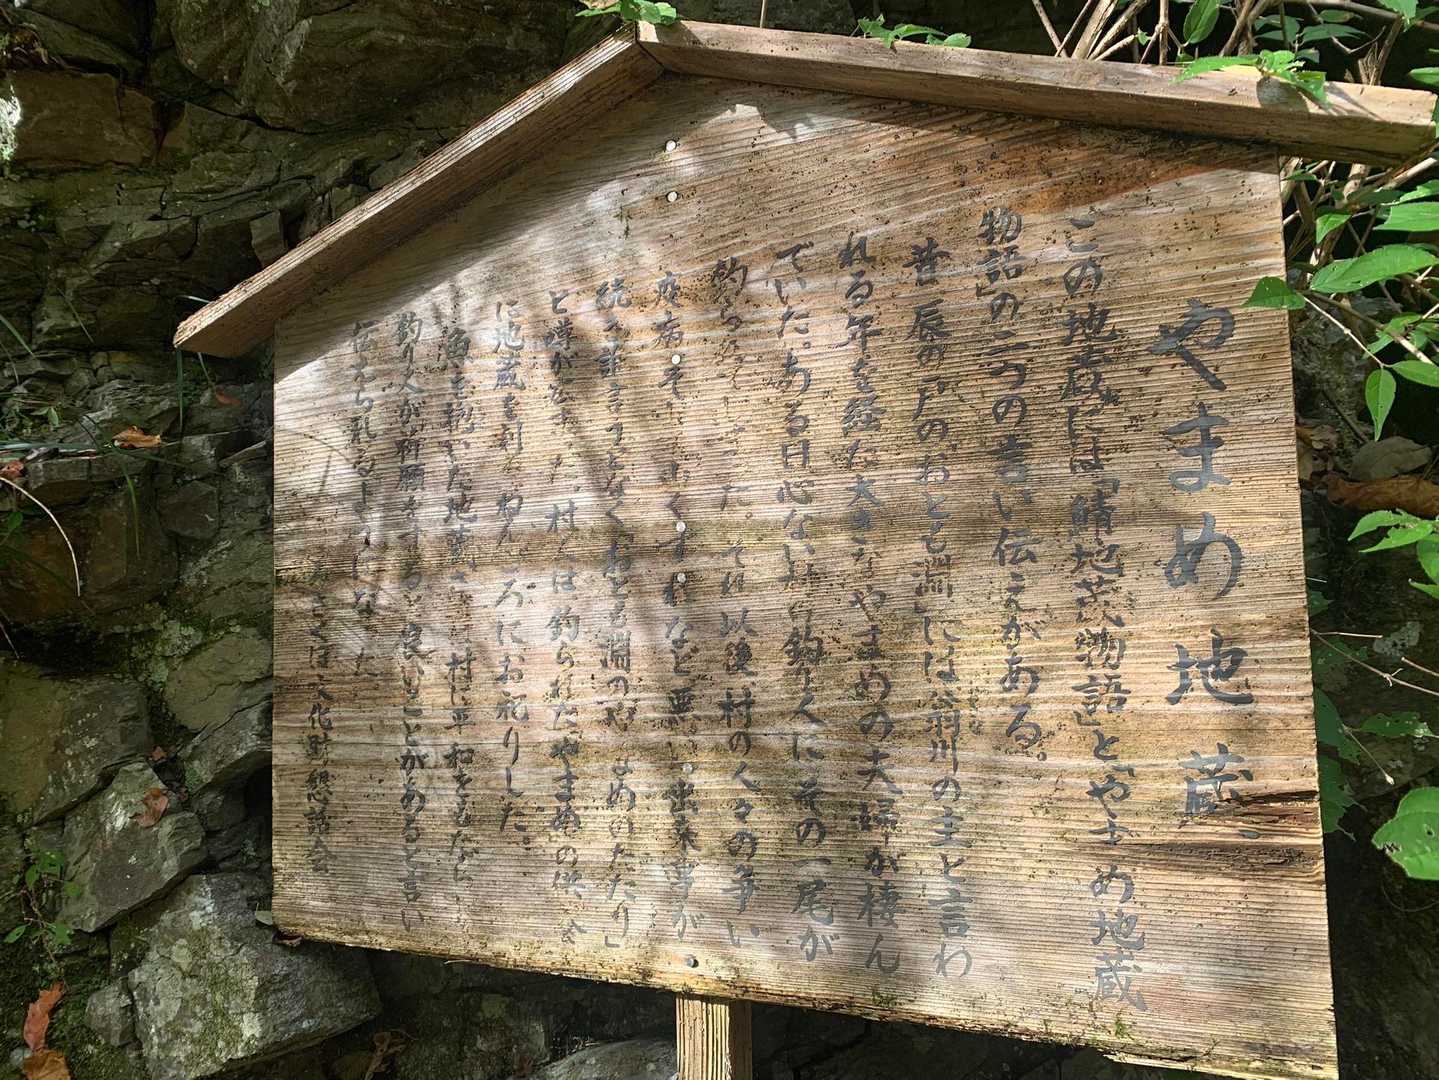 やまめ地蔵
この地蔵には「鯖地蔵物語」と「やまめ地蔵
物語」の二つの言い伝えがある。
昔辰の戸の「おとも淵」には翁川の主と言わ
れる年を経た大きなやまめの夫婦が棲ん
でいた。ある日心ない釣り人にその一尾が
釣られて しまった。それ以後村の人々の争い
疫病 そ くずれなど悪い出来事が
続き誰言うとなく「おとも淵のやまめのたたり」
と噂が た。村人は釣られたやまめの供
に地蔵を刻みねんごろにお祀りした。
魚を抱いた地蔵 村に平和をもたら
釣り人が祈願をすると良いことがあると言い
伝えられるようになった
さくぼ文化財懇話会